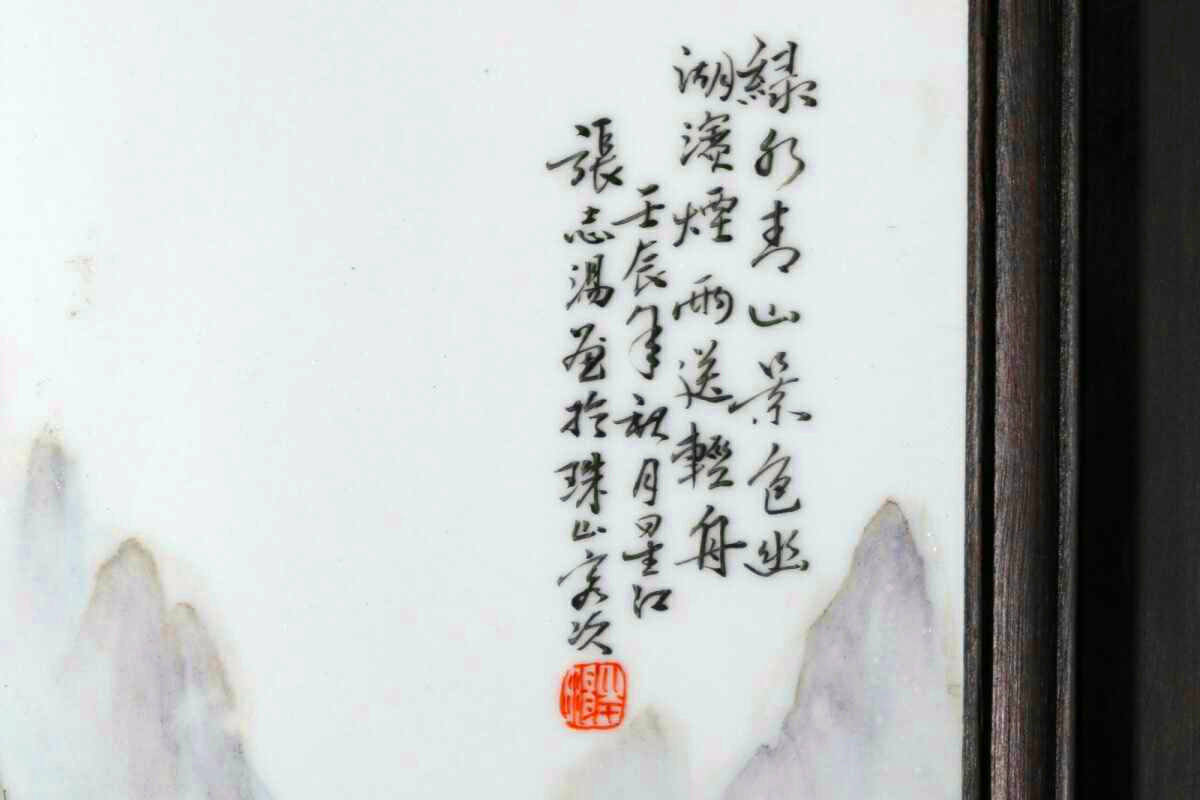 綠水青山景色幽
湖濱煙雨送輕舟
壬辰年秋月星江
張志湯畫於珠山客次